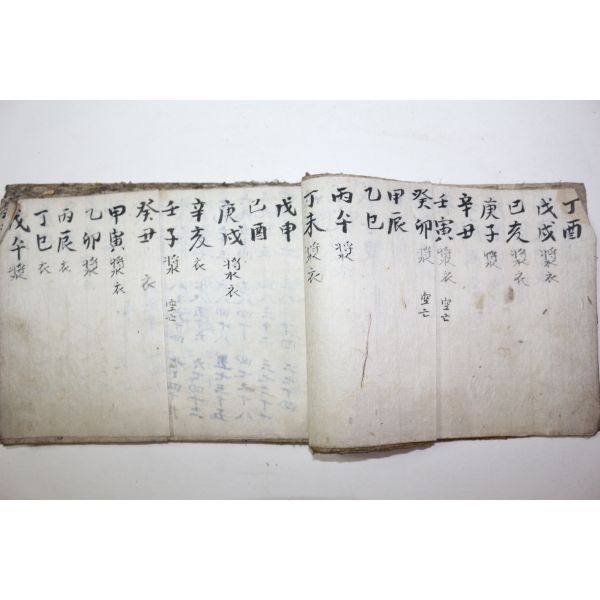 丁酉
戊戌 漿衣
己亥 漿衣
庚子 漿
辛丑
壬寅 漿衣 空亡
癸卯 漿 空亡
甲辰
乙巳
丙午 漿
丁未 漿衣
戊申
己酉
庚戌 漿衣
辛亥 衣
壬子 漿 空亡
癸丑 衣
甲寅 漿衣
乙卯 漿
丙辰 衣
丁巳 衣
戊午 漿